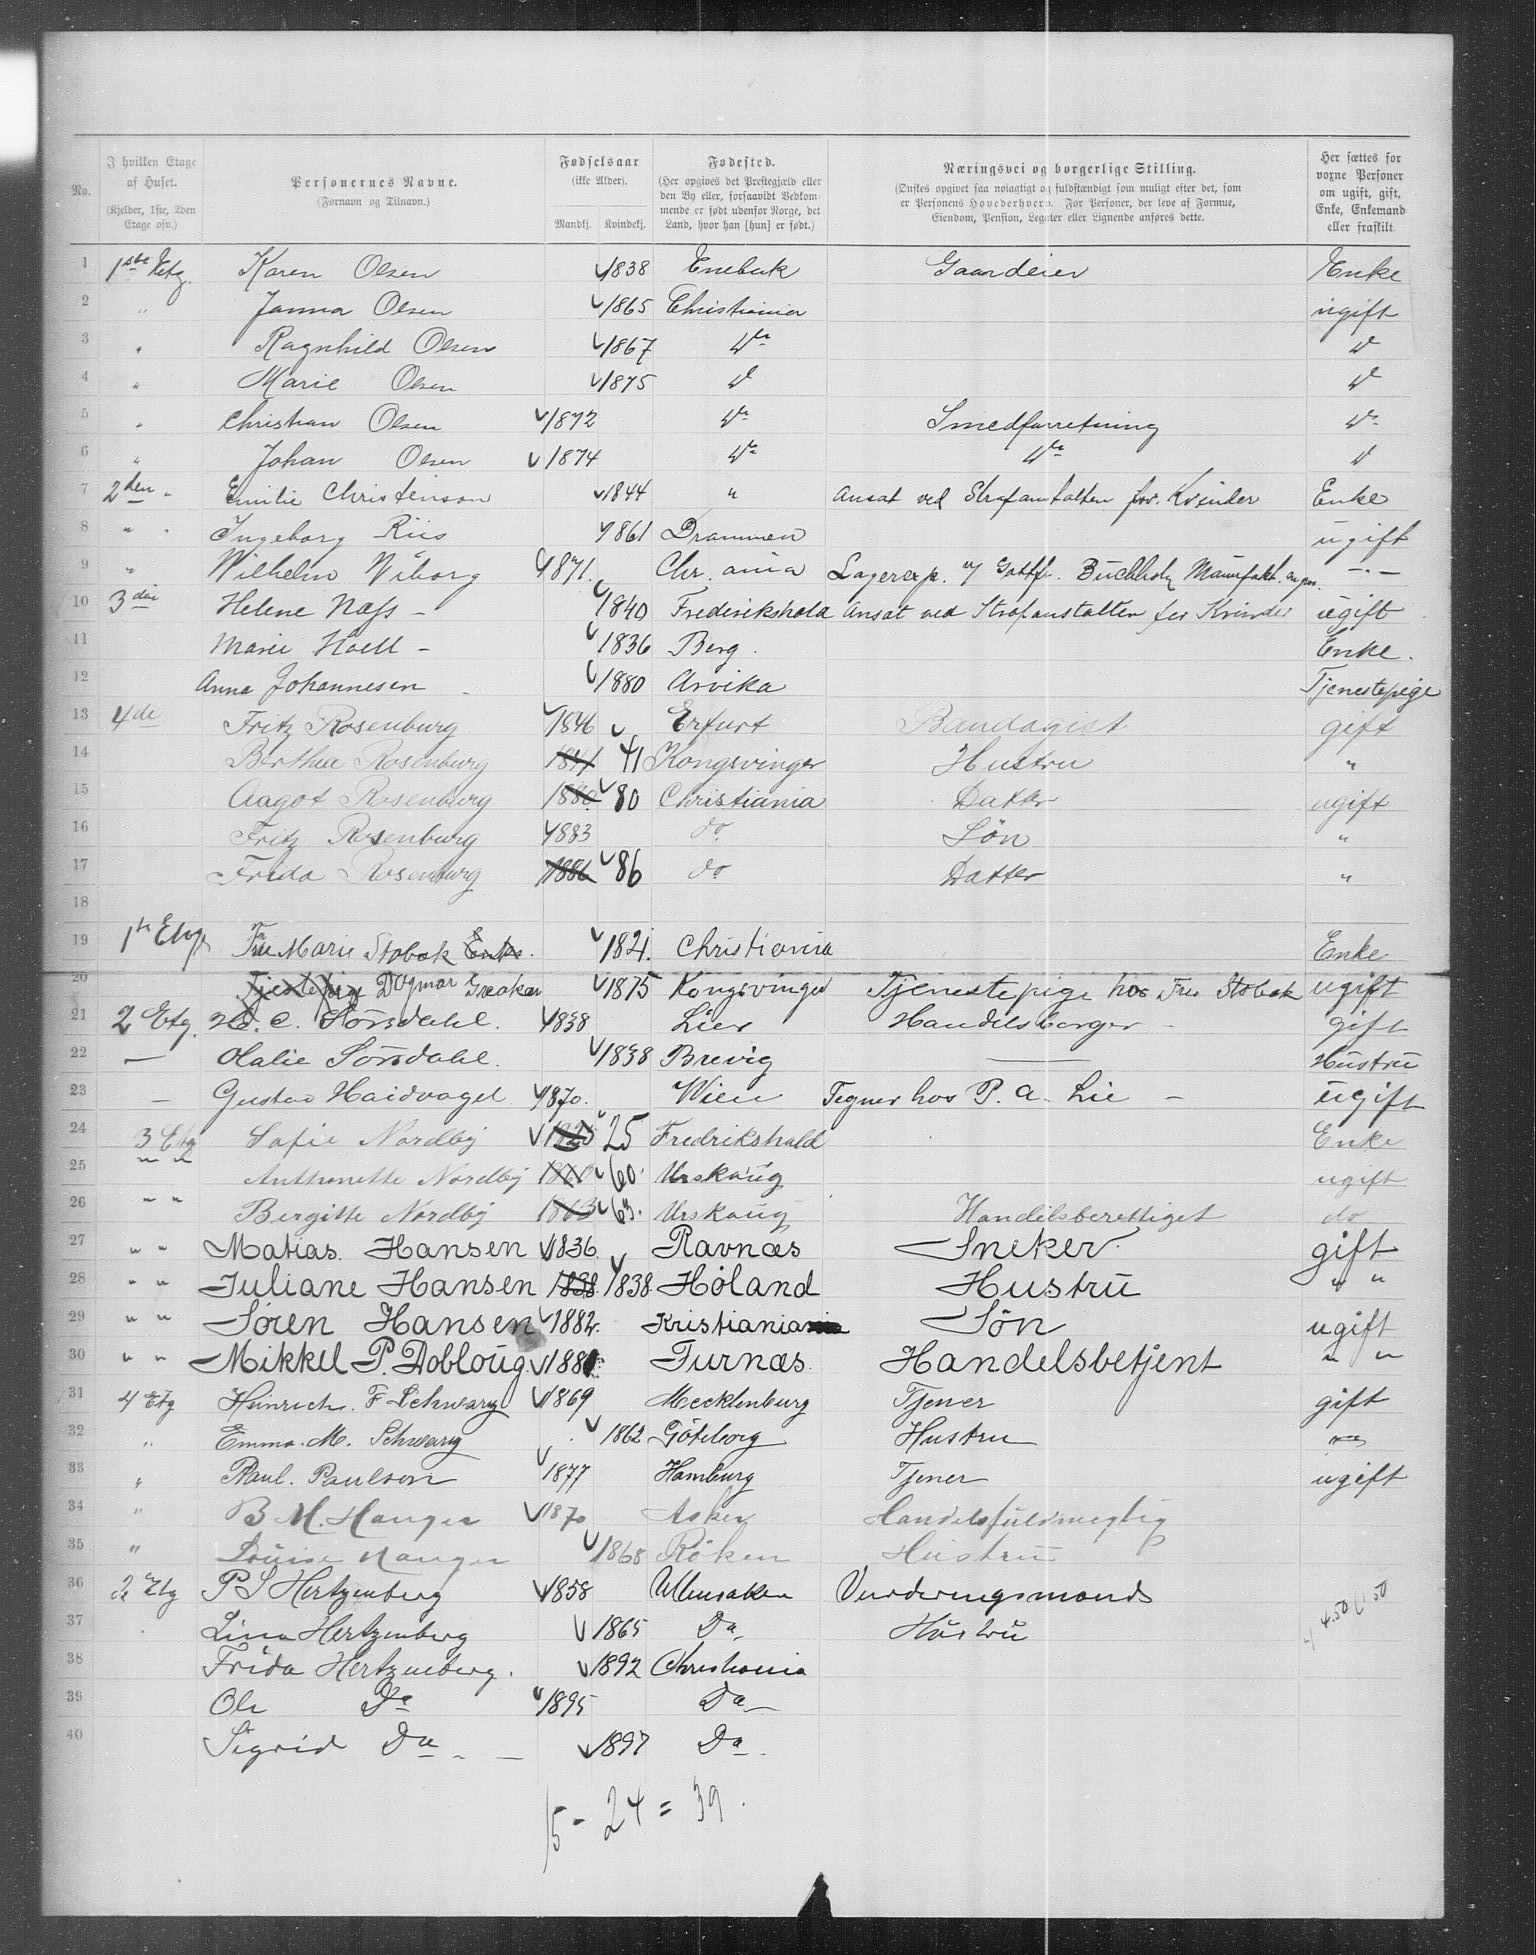 No.
I hvilken Etage af Huset.
(Kjelder, 1ste, 2den Etage osv.)
Personernes Navne.
(Fornavn og Tilnavn.)
Fødselsaar
(ikke Alder).
Mandkj. Kvindekj.
Fødested.
(Her opgives det Prestegjæld eller den By eller, forsaavidt Vedkommende er født udenfor Norge, det Land, hvor han [hun] er født.)
Næringsvei og borgerlige Stilling.
(Ønskes opgivet saa nøiagtigt og fuldstændigt som muligt efter det, som er Personens Hovederhverv. For Personer, der leve af Formue, Eiendom, Pension, Legater eller Lignende anføres dette.
Her sættes for voxne Personer om ugift, gift, Enke, Enkemand eller fraskilt.
1 1ste Etg. Karen Olsen 1838 Enebak Gaardeier Enke
2 " Janna Olsen 1865 Christiania ugift
3 " Ragnhild Olsen 1867 do do
4 " Marie Olsen 1875 do do
5 " Christian Olsen 1872 do Smedforretning do
6 " Johan Olsen 1874 do do do
7 2den " Emilie Christenson 1844 " Ansat ved Strafanstalten for Kvinder Enke
8 " Ingeborg Riis 1861 Drammen ugift
9 " Wilhelm Wiborg 1871. Chr.ania Lagerexp. Gottfr. Buchholz Manufakt. - " -
10 3die Helene Næss - 1840 Frederikshald Ansat ved Strafanstalten for Kvinder ugift
11 Marie Hoell - 1836 Berg. Enke.
12 Anna Johannesen 1880 Arvika Tjenestepige
13 4de Fritz Rosenburg 1846 Erfurt Bandagist gift
14 Berthea Rosenburg 1841 41 Kongsvinger Hustru "
15 Aagot Rosenburg 1880 80 Christiania Datter ugift
16 Fritz Rosenburg 1883 do Søn "
17 Frida Rosenburg 1886 86 do Datter "
18
19 1ste Etg Fru Marie Stobak Enke. 1821. Christiania Enke
20 Tjenestepige Dagmar Greaker 1875 Kongsvinger Tjenestepige hos Fru Stobak ugift
21 2 Etg. H. C. Sørsdahl. 1838 Lier Handelsborger - gift
22 — Olalie Sørsdahl. 1838 Brevig — Hustru
23 — Gustav Haidvogel 1870. Wien Tegner hos P. A. Lie - ugift
24 3 Etg Sofie Nordby 1825 25 Fredrikshald Enke
25 " " Anthonette Nordby 1860 60 Urskaug ugift
26 " " Bergitte Nordby 1863 63. Urskaug Handelsberettiget do
27 " " Matias. Hansen 1836. Ravnæs Sneker. gift
28 " " Juliane Hansen 1838 1838. Høland Hustru " "
29 " " Søren Hansen 1882. Kristiania Søn ugift
30 " " Mikkel P. Dobloug. 1881 Furnæs. Handelsbetjent " "
31 4 Etg Heinrich. F Schwarz 1869 Mecklenburg Tjener gift
32 " Emma. M. Schwarz 1862 Göteborg Hustru
33 " Paul. Paulson 1877 Hamburg Tjener ugift
34 " B M. Hanger 1870 Asker Handelsfuldmegtig
35 " Louise Hanger 1868 Røken Hustru
36 2 Etg P S Hertzenberg 1858 Ullensaker Vurderingsmand
37 Lina Hertzenberg 1865 Do Hustru
38 Frida Hertzenberg. 1892 Christiania
39 Ole Do 1895 Do
40 Sigrid Do 1897 Do.
4.50
15 - 24 = 39.